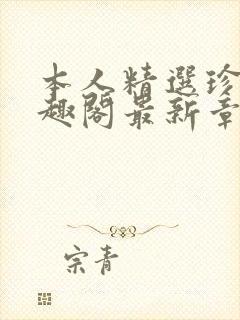 本人精選珍
趣閣最新章
宗青